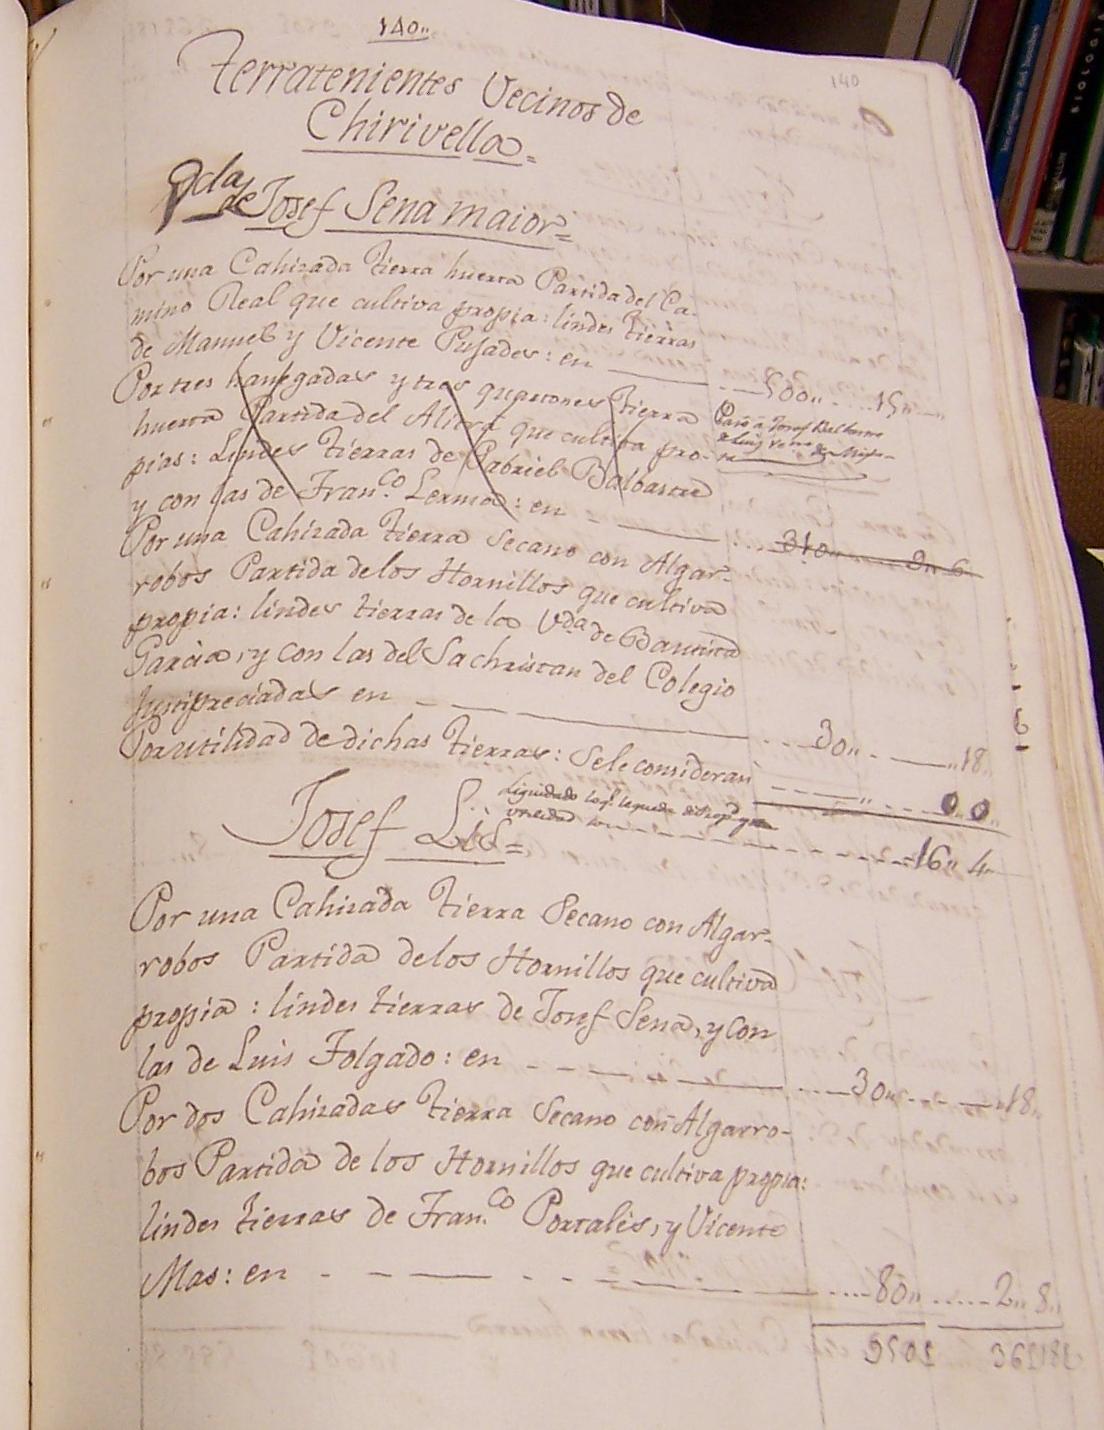 140„
140
Terratenientes Vecinos de
Chirivella=
Vda de Josef Sena maior=
Por una Cahizada tierra huerta Partida del Ca-
mino Real que cultiva propia: lindes tierras
de Manuel y Vicente Pujades: en 500„ 15„
Por tres hanegadas y tres quartones tierra
Pasó a Josef Balbastre
de Luis
huerta Partida del Aliera que cultiva pro-
pias: Lindes tierras de Gabriel Balbastre
y con las de Fran.co Lerma: en 310„ 9„6
Por una Cahizada tierra Secano con Algar-
robos Partida de los Hornillos que cultiva
propia: lindes tierras de la Vda de Bautista
Garcia, y con las del Sachristan del Colegio
Justipreciadas en 30„ „18„
Por utilidad de dichas tierras: Se le consideran
Liquidado
utilidad 16„4
Josef Lis=
Por una Cahizada tierra Secano con Algar-
robos Partida de los Hornillos que cultiva
propia: lindes tierras de Josef Sena, y con
las de Luis Folgado: en 30„ „18„
Por dos Cahizadas tierra Secano con Algarro-
bos Partida de los Hornillos que cultiva propia:
lindes tierras de Fran.co Portalés, y Vicente
Mas: en 80„ 2„8„
BIOLOGIA